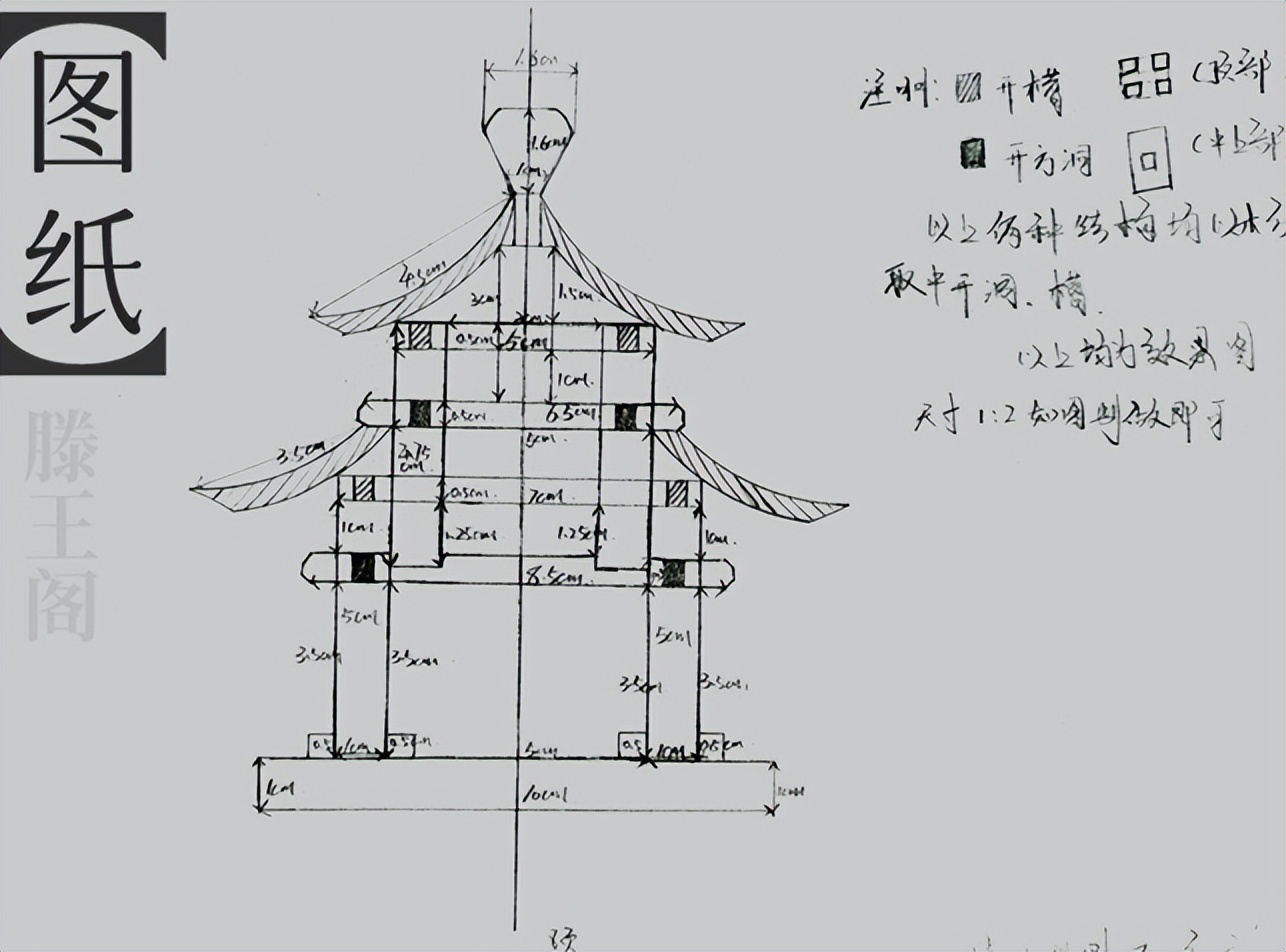 图纸
滕王阁
1.8cm
1.6cm
1cm
4.5cm
3cm
1.5cm
0.5cm
5cm
1cm.
0.5cm.
6.5cm
3.5cm
2.75cm.
5cm
0.5cm.
7cm.
1cm.
1.25cm.
1cm.
8.5cm.
5cm
5cm
3.5cm
3.5cm
3.5cm
3.5cm.
0.5
1cm
0.5cm
5cm
0.5
1cm
0.5cm
1cm
10cm
1cm
开槽
(顶部
开方洞
以上两种结构均以
取中开洞、槽.
以上均为效果图
尺寸1:2如图制做即可
顶